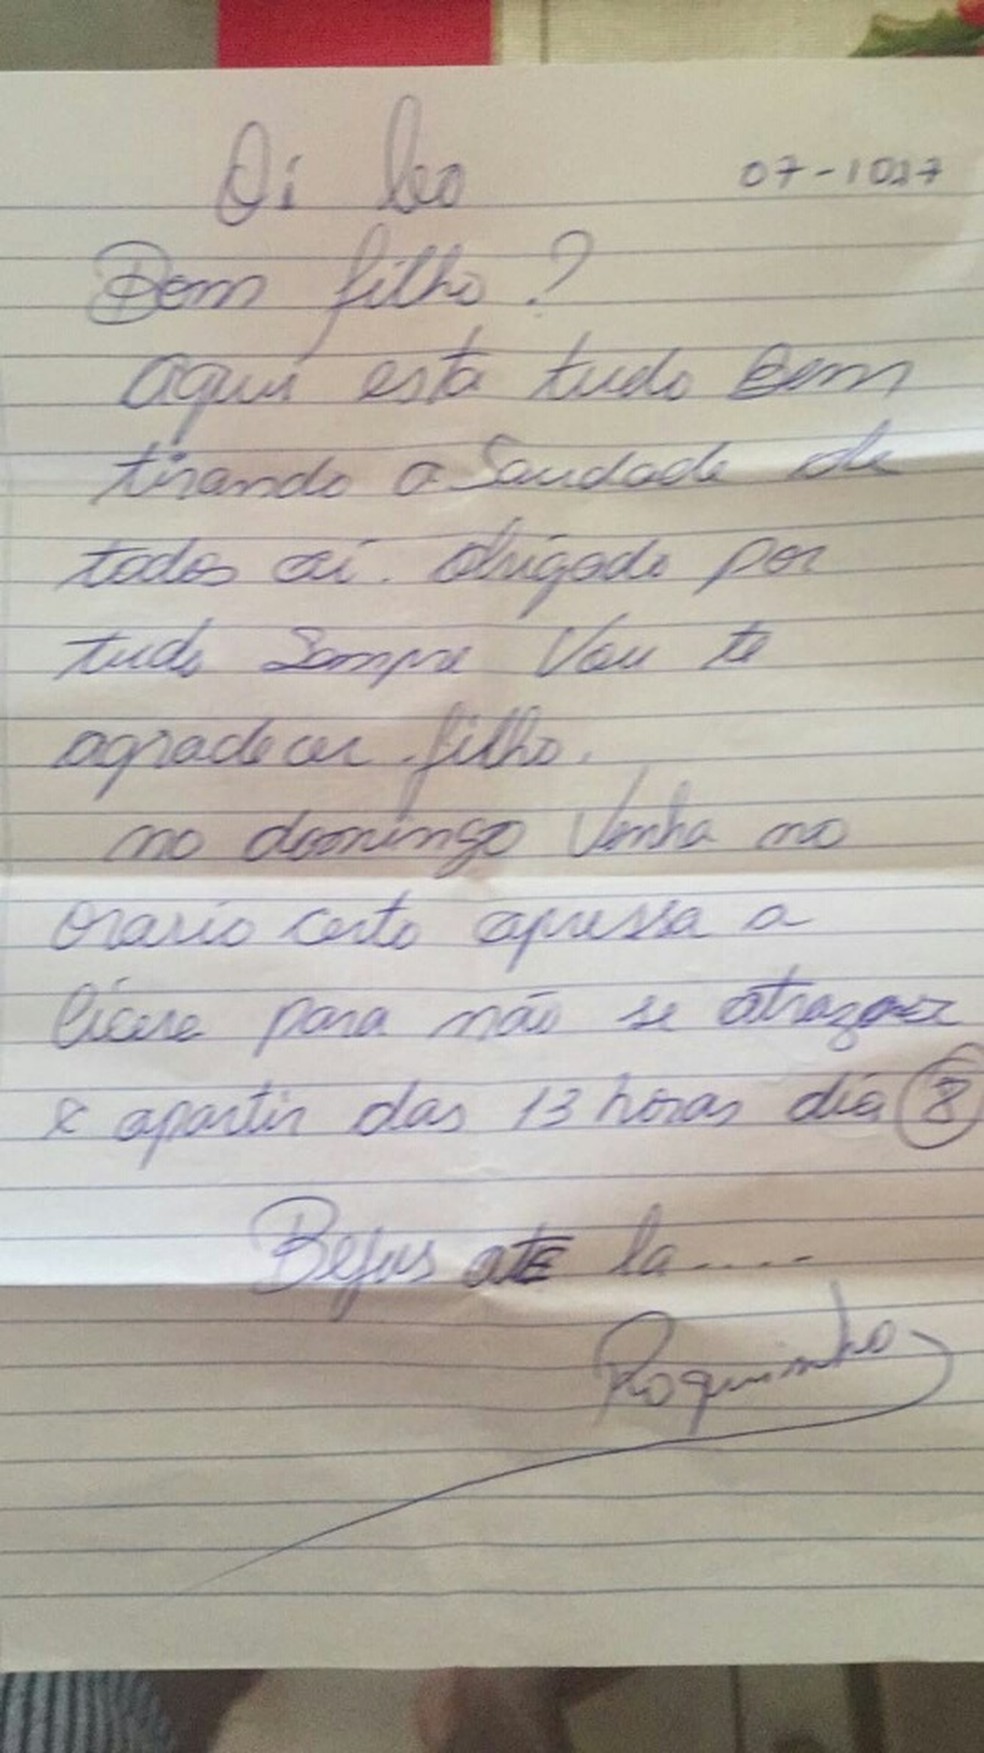 Oi leo 07-1027
Bem filho?
aqui esta tudo Bem
tirando a Saudade de
todos ai. obrigado por
tudo Sempre Vou te
agradecer filho.
no domingo Venha no
orario certo apressa a
para não se atrazar
x apartir das 13 horas dia 8
Bejus atE la....
Roquinho